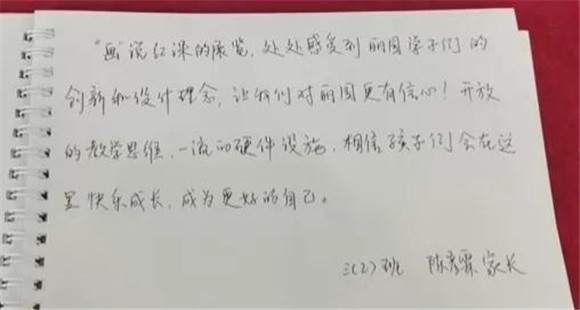 “画”说红课的展览，处处感受到丽园学子们的
创新和设计理念，让我们对丽园更有信心！开放
的教学思维，一流的硬件设施，相信孩子们会在这
里快乐成长，成为更好的自己。
三(2)班 陈彦霖家长